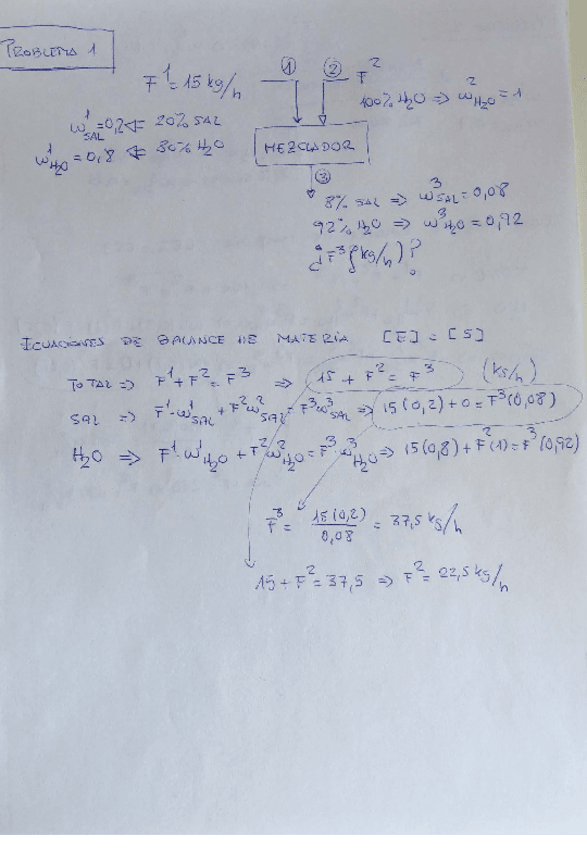 PROBLEMA 1
F¹ = 15 kg/h
① ② F²
100% H₂O ⇒ w²H₂O = 1
w¹SAL = 0,2 ⇐ 20% SAL
w¹H₂O = 0,8 ⇐ 80% H₂O
MEZCLADOR
③
8% SAL ⇒ w³SAL = 0,08
92% H₂O ⇒ w³H₂O = 0,92
¿F³ (kg/h)?
ECUACIONES DE BALANCE DE MATERIA [E] = [S]
TOTAL ⇒ F¹ + F² = F³ ⇒ 15 + F² = F³ (kg/h)
SAL ⇒ F¹·w¹SAL + F²w²SAL = F³w³SAL ⇒ 15(0,2) + 0 = F³(0,08)
H₂O ⇒ F¹·w¹H₂O + F²w²H₂O = F³·w³H₂O ⇒ 15(0,8) + F²(1) = F³(0,92)
F³ = 15(0,2)/0,08 = 37,5 kg/h
15 + F² = 37,5 ⇒ F² = 22,5 kg/h